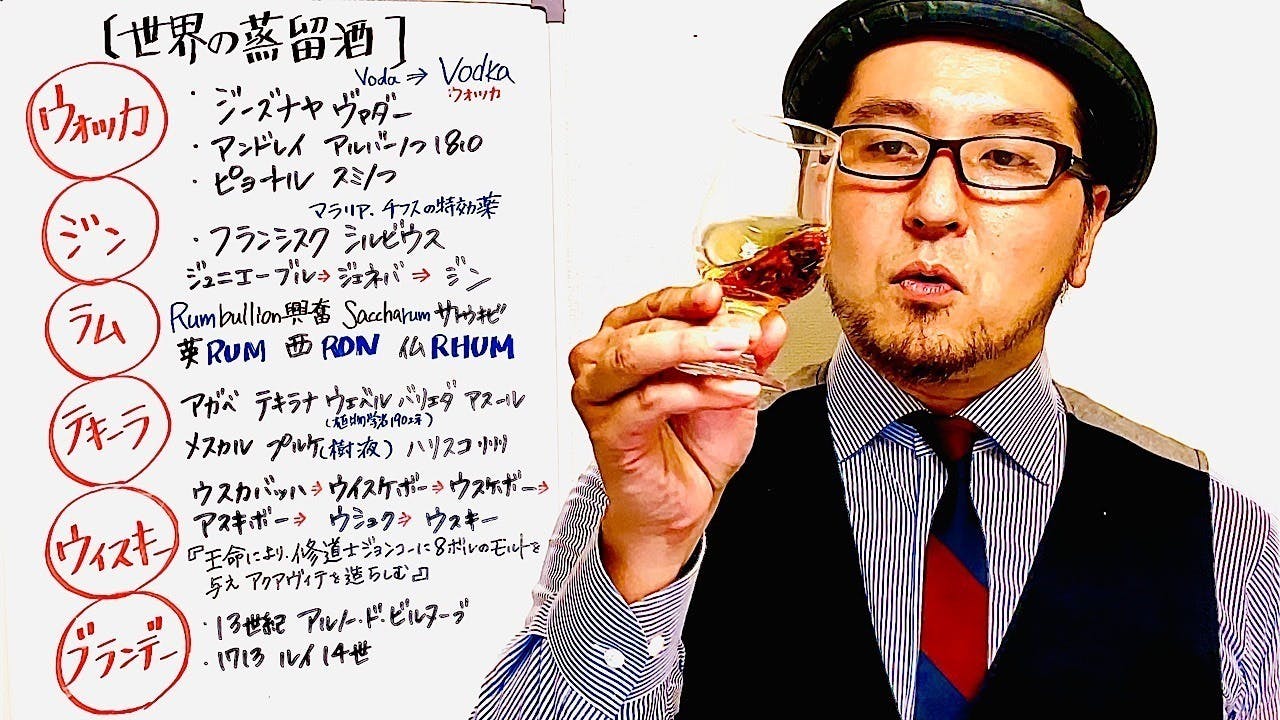 [世界の蒸留酒]
Voda ⇒ Vodka
ウォッカ
ウォッカ
・ジーズナヤ ヴァダー
・アンドレイ アルバーノフ 1810
・ピョートル スミノフ
ジン
マラリア、チフスの特効薬
・フランシスク シルビウス
ジュニエーブル→ジェネバ→ジン
ラム
Rumbullion興奮 Saccharumサトウキビ
英RUM 西RON 仏RHUM
テキーラ
アガベ テキラナ ウェベル バリエダ アスール
(植物学者1902年)
メスカル プルケ(樹液) ハリスコ
ウィスキー
ウスカバッハ→ウイスケボー→ウスケボー→
アスキボー→ ウシュク→ ウスキー
『王命により、修道士ジョンコーに8ボルのモルトを
与え アクアヴィテを造らしむ』
ブランデー
・13世紀 アルノー・ド・ビルヌーブ
・1713 ルイ14世